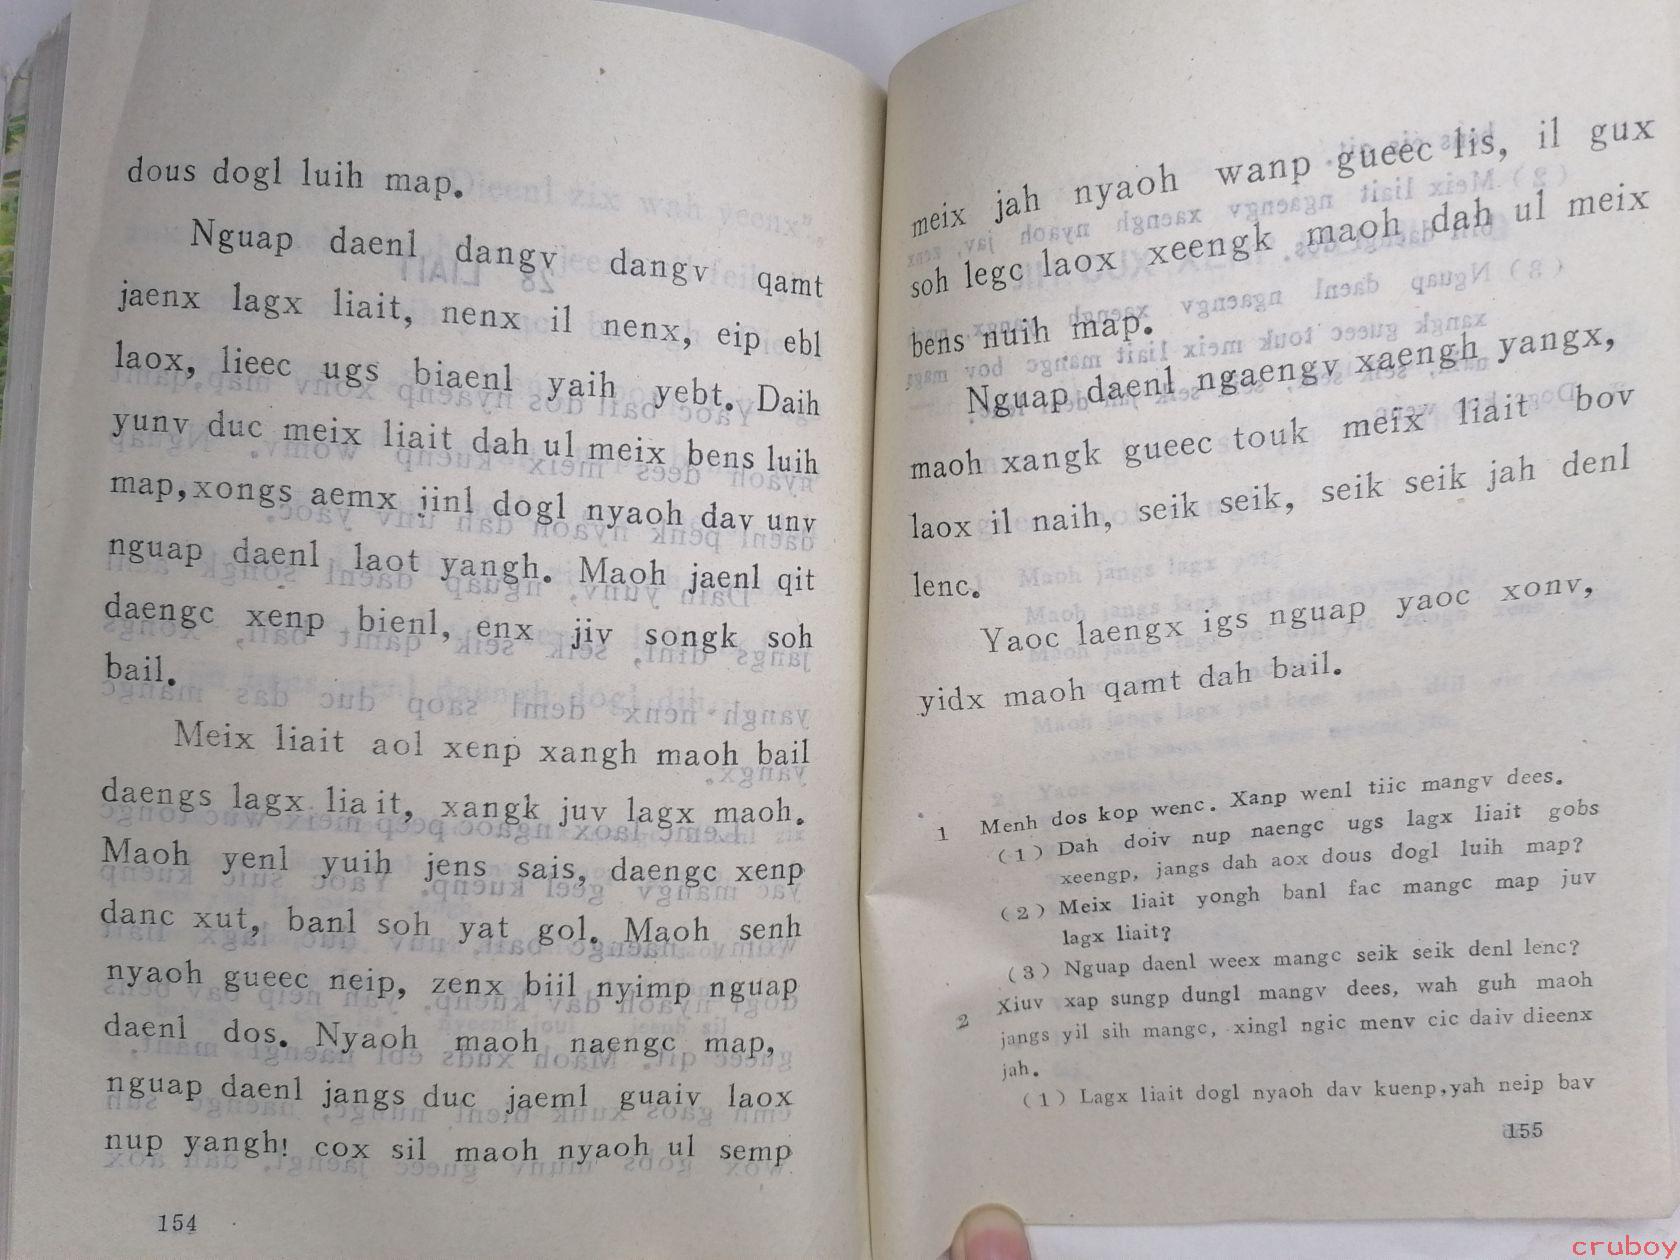 dous dogl luih map.
Nguap daenl dangv dangv qamt
jaenx lagx liait, nenx il nenx, eip ebl
laox, lieec ugs biaenl yaih yebt. Daih
yunv duc meix liait dah ul meix bens luih
map, xongs aemx jinl dogl nyaoh dav unv
nguap daenl laot yangh. Maoh jaenl qit
daengc xenp bienl, enx jiv songk soh
bail.
Meix liait aol xenp xangh maoh bail
daengs lagx liait, xangk juv lagx maoh.
Maoh yenl yuih jens sais, daengc xenp
danc xut, banl soh yat gol. Maoh senh
nyaoh gueec neip, zenx biil nyimp nguap
daenl dos. Nyaoh maoh naengc map,
nguap daenl jangs duc jaeml guaiv laox
nup yangh! cox sil maoh nyaoh ul semp
154
meix jah nyaoh wanp gueec lis, il gux
soh legc laox xeengk maoh dah ul meix
bens nuih map.
Nguap daenl ngaengv xaengh yangx,
maoh xangk gueec touk meix liait bov
laox il naih, seik seik, seik seik jah denl
lenc.
Yaoc laengx igs nguap yaoc xonv,
yidx maoh qamt dah bail.
1 Menh dos kop wenc. Xanp wenl tiic mangv dees.
(1) Dah doiv nup naengc ugs lagx liait gobs
xeengp, jangs dah aox dous dogl luih map?
(2) Meix liait yongh banl fac mangc map juv
lagx liait?
(3) Nguap daenl weex mangc seik seik denl lenc?
2 Xiuv xap sungp dungl mangv dees, wah guh maoh
jangs yil sih mangc, xingl ngic menv cic daiv dieenx
jah.
(1) Lagx liait dogl nyaoh dav kuenp, yah neip bav
155
cruboy